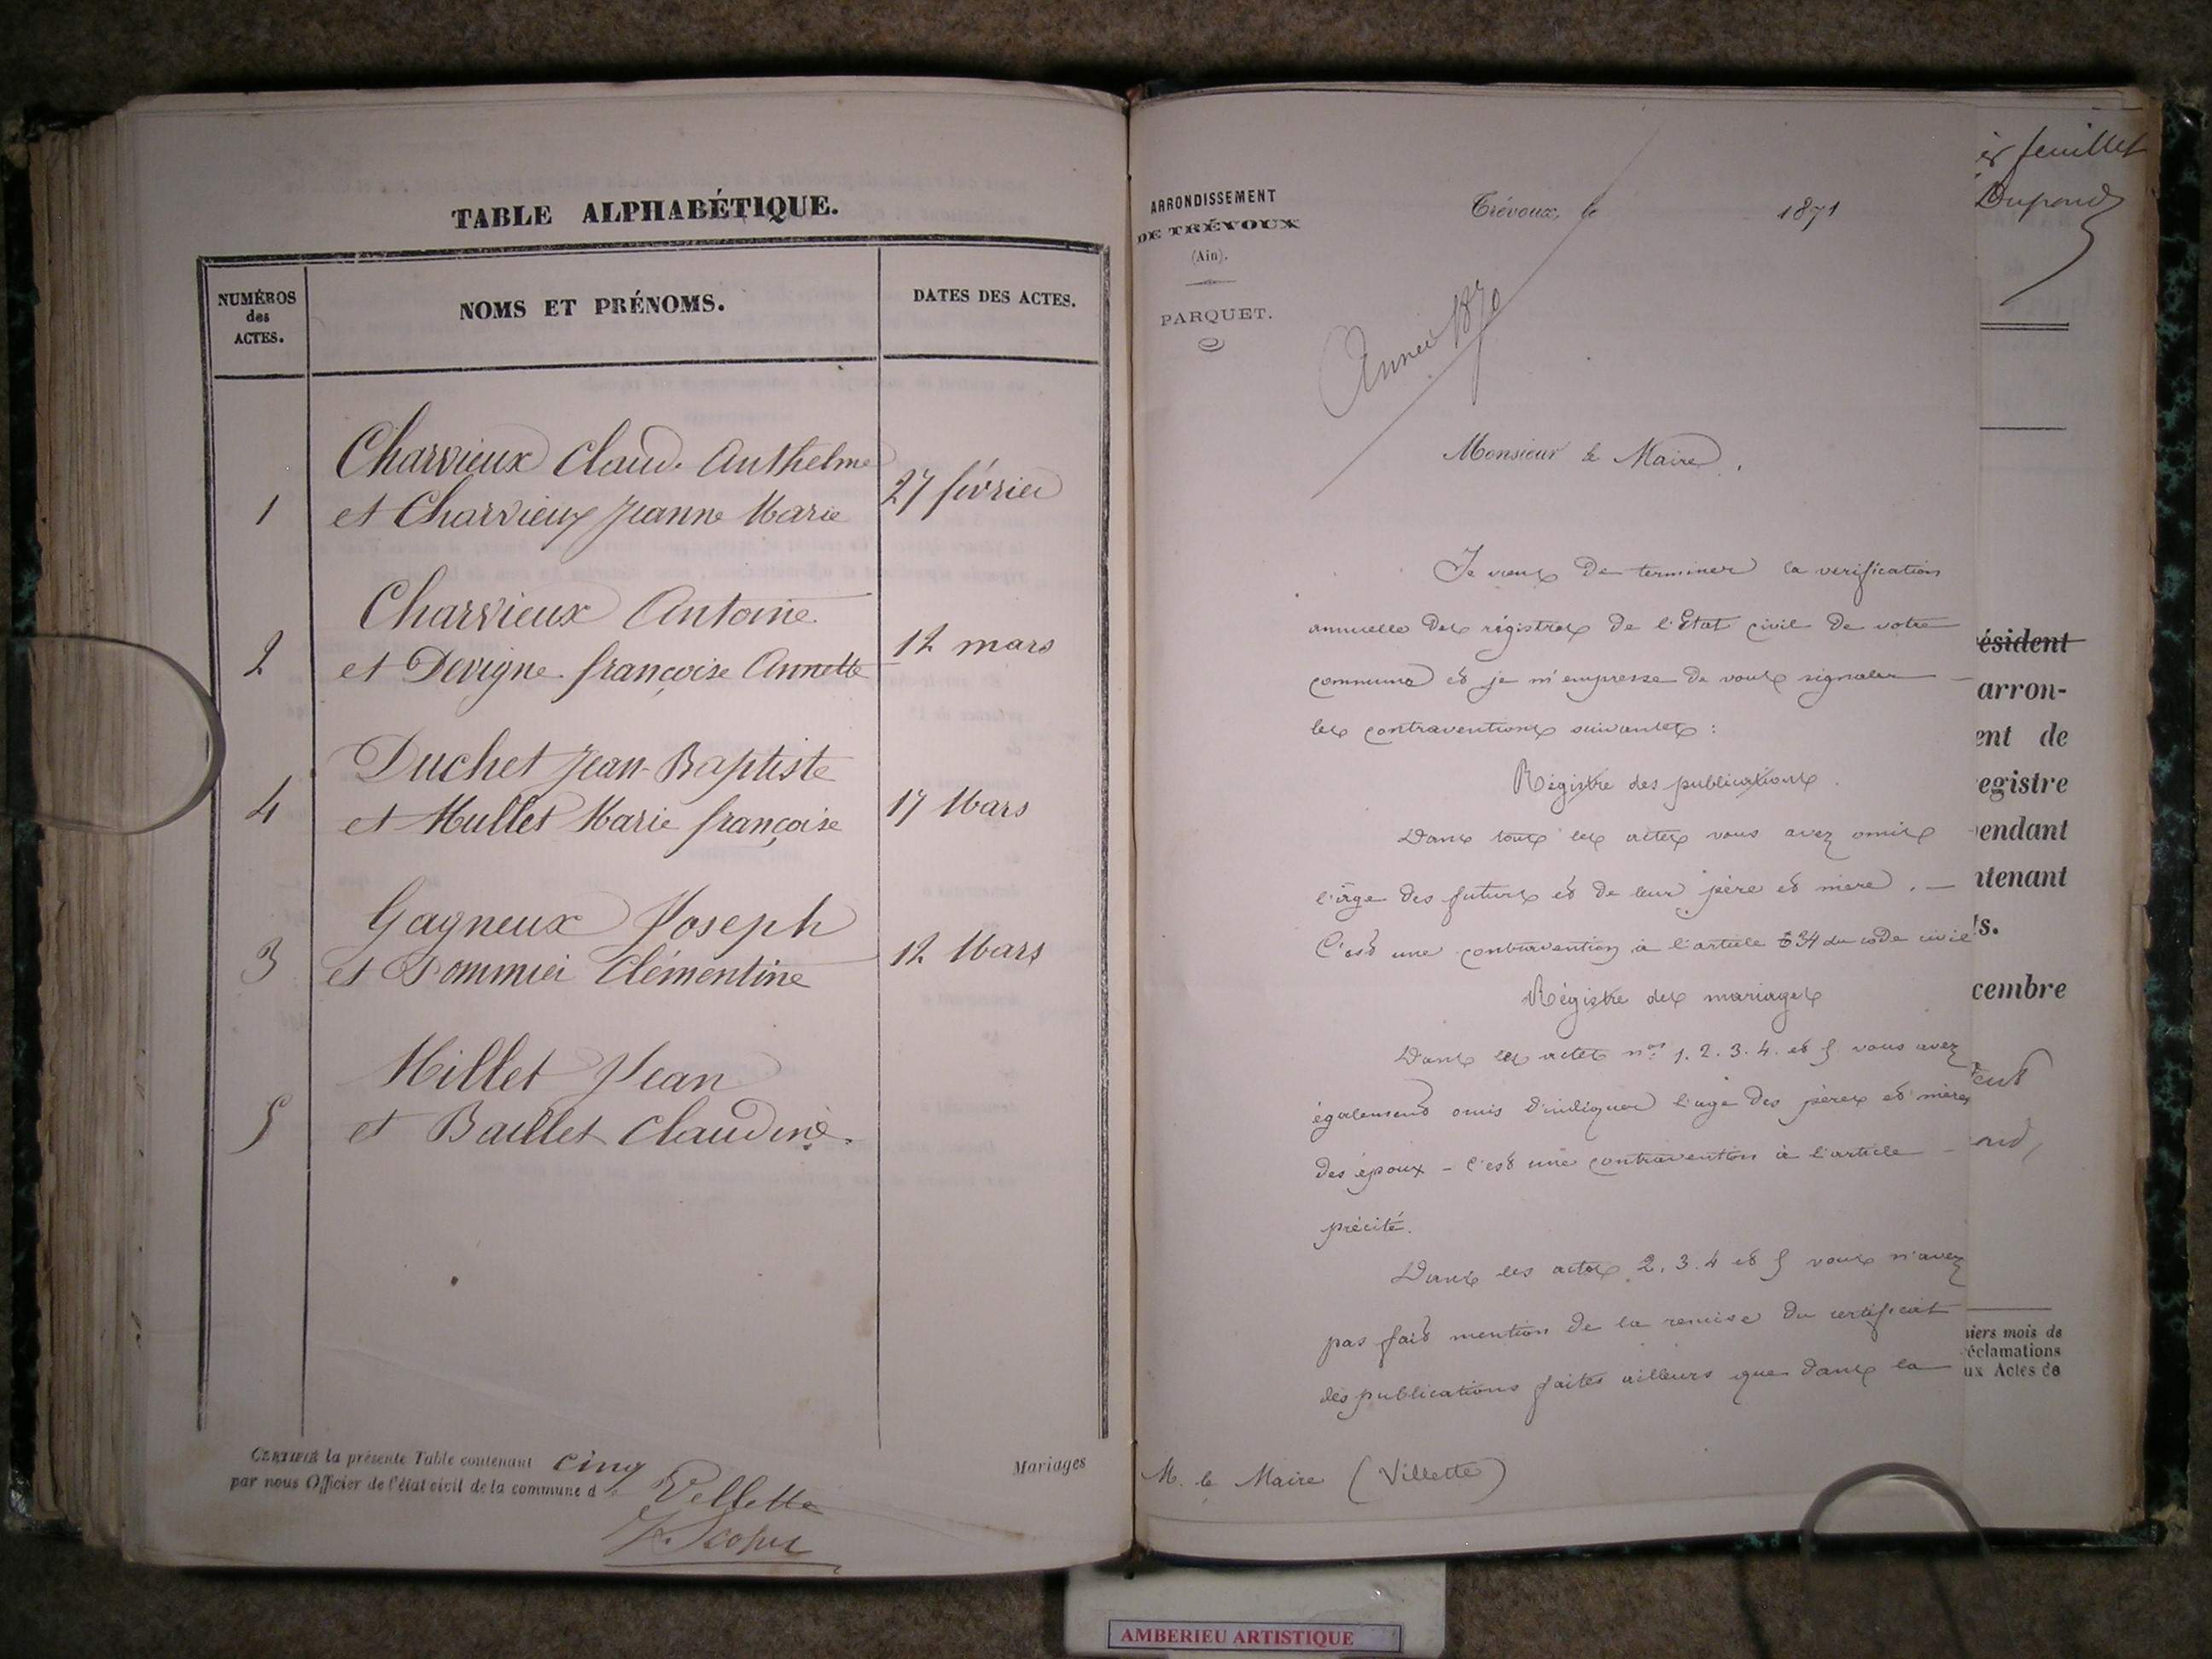 TABLE ALPHABÉTIQUE.
NUMÉROS
des
ACTES.
NOMS ET PRÉNOMS.
DATES DES ACTES.
Charvieux Claud. Anthelme
1 et Charvieux Jeanne Marie 27 février
Charvieux Antoine
2 et Devigne françoise Annette 12 mars
Duchet Jean-Baptiste
4 et Mullet Marie françoise 17 Mars
Gagneux Joseph
3 et Pommier Clémentine 12 Mars
Millet Jean
5 et Baillet Claudine.
CERTIFIÉ la présente Table contenant cinq Mariages
par nous Officier de l'état civil de la commune de Villette
ARRONDISSEMENT
DE TRÉVOUX
(Ain).
PARQUET.
Trévoux, le 1871
Année 1870
Monsieur le Maire,
Je viens de terminer la vérification
annuelle des régistres de l'Etat civil de votre
commune et je m'empresse de vous signaler
les contraventions suivantes :
Régistre des publications.
Dans tous les actes vous avez omis
l'âge des futurs et de leur père et mère. —
C'est une contravention à l'article 34 du code civil
Régistre des mariages
Dans les actes nos 1. 2. 3. 4. et 5 vous avez
également omis d'indiquer l'age des pères et mères
des époux - c'est une contravention à l'article —
précité.
Dans les actes 2. 3. 4 et 5 vous n'avez
pas fait mention de la remise du certificat
des publications faites ailleurs que dans la
M. le Maire (Villette)
er feuillet
Dupond
ésident
arron-
ent de
egistre
endant
ntenant
s.
cembre
niers mois de
éclamations
ux Actes de
AMBERIEU ARTISTIQUE